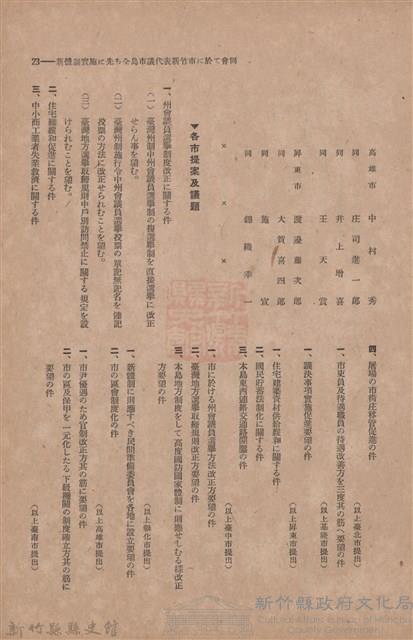 23——新體制實施に先ち全島市議代表新竹市に於て會同
高雄市 中村 秀
同 庄司進一郎
同 井上增喜
同 王天賞
屏東市 渡邊藤次郎
同 大賀喜四郎
同 施 宜
同 錦織幸一
× × × ×
▼各市提案及議題
一、州會議員選舉制度改正に關する件
(一)臺灣州制中州會議員選舉制の複選舉制を直接選舉に改正
せらんん事を望む。
(二)臺灣州制施行令中州會議員選舉投票の單記無記名を連記
投票の方法に改正せられむことを望む。
(三)臺灣地方選舉取締規則中戶別訪問禁止に關する規定を設
けられむことを望む。
二、住宅緩和促進に關する件
三、中小商工業者失業救濟に關する件
四、屠場の市街庄移管促進の件
(以上臺北市提出)
一、市吏員及待遇職員の待遇改善方を三度其の筋へ要望の件
(以上基隆市提出)
一、議決事項實施促進要望の件
(以上屏東市提出)
一、住宅建築資材供給緩和に關する件
二、國民貯蓄法制化に關する件
三、本島東西連絡交通路開鑿の件
(以上臺中市提出)
一、市に於ける州會議員選舉方法改正方要望の件
二、臺灣地方選舉取締規則改正方要望の件
三、本島地方制度をして高度國防國家體制に則應せしむる樣改正
方要望の件
(以上彰化市提出)
一、新體制に則應すべき民間準備委員會を各地に設立要望の件
二、市の區會制度化の件
(以上高雄市提出)
一、市尹優遇のため官制改正方其の筋に要望の件
二、市の區及保甲を一元化したる下級機關の制度確立方其の筋に
要望の件
(以上臺南市提出)
新竹縣縣史館
新竹縣政府文化局
Cultural Affairs Bureau of Hsinchu
County Government